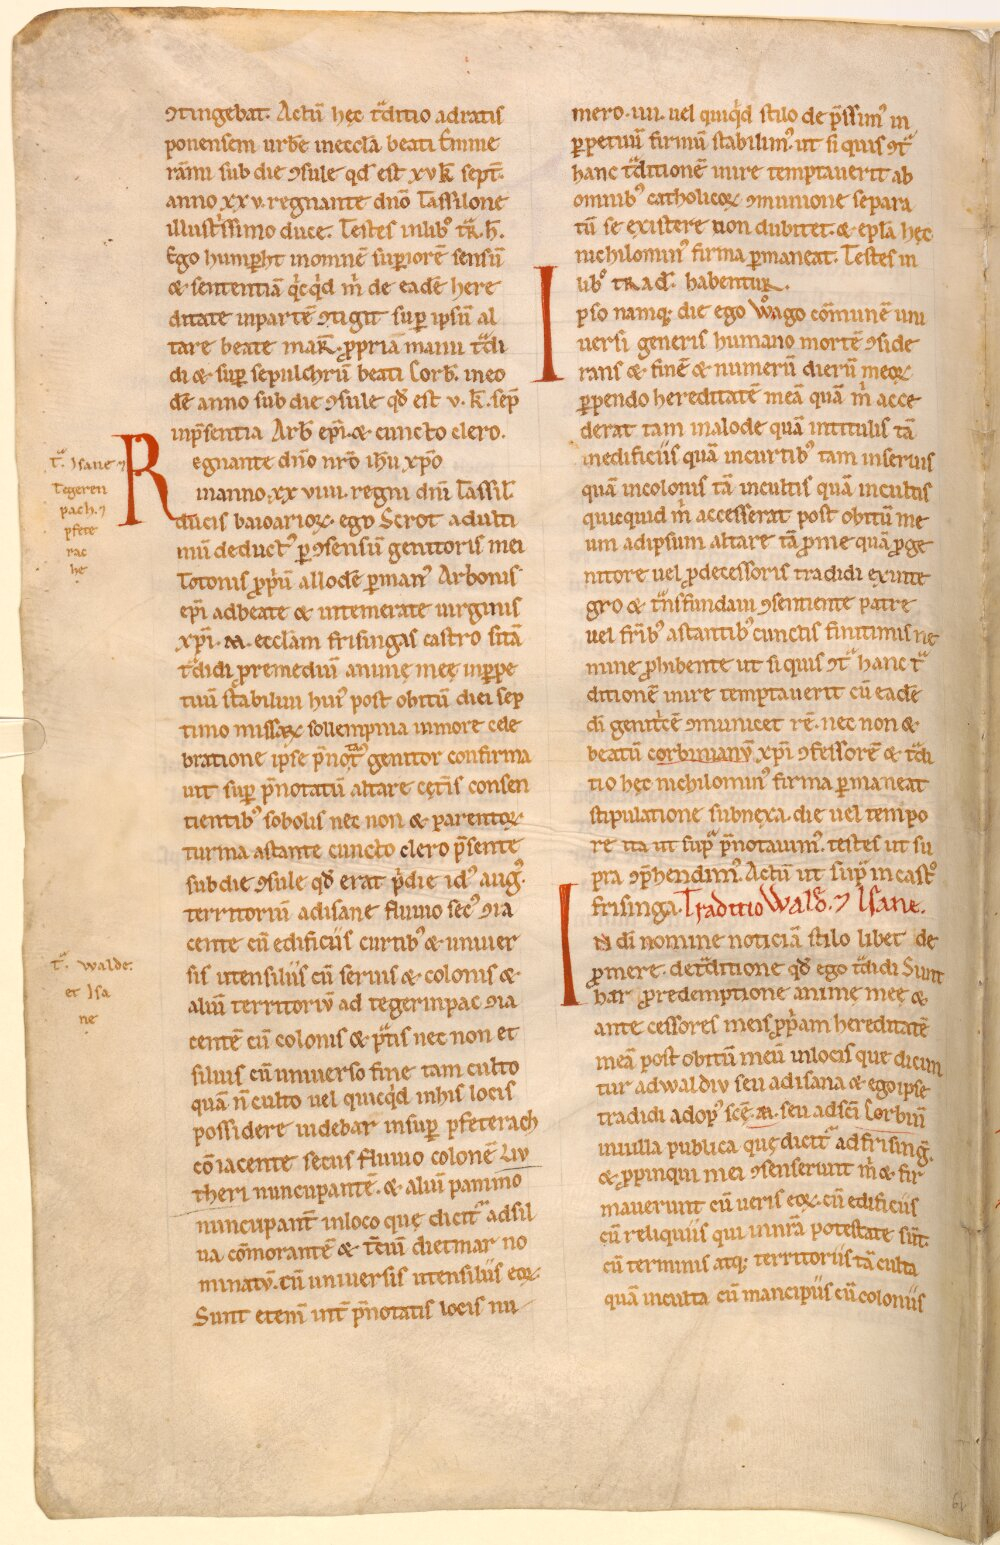 ↄtingebat. Actū hęc t͛ditio ad ratis
ponensem urbē inecclā beati Emme
rāmi sub die ↄsule qd̄ est xv k̄ sept̄.
anno xxv. regnante dn̄o Tassilone
illustⁱssimo duce. Testes in libº tR̄. h̄.
Ego humpht inomnē supiorē sensū
& sententiā qⁱcqd m̄ de eadē here
ditate inpartē ↄtigit sup ipsū al
tare beate maR̄. ꝓpriā manu t͛di
di & sup sepulchrū beati Corb̄. in eo
dē anno sub die ↄsule qd̄ est v. k̄. sep̄
inp̄sentia Arb̄ ep̄i. & cuncto clero.
Regnante dn̄o nr̄o ih̄u xp̄o
in anno xxviiii. regni dn̄i Tassil̄
ducis baioarioꝝ. ego Scrot adulti
mū deduct᾽ ꝑ ↄsensū genitoris mei
Totonis ꝓpⁱū allodē ꝑman᾽ Arbonis
ep̄i adbeate & intemerate uirginis
xp̄i. M. ecclām frisingas castro sitā
t͛didi ꝓremediū animę meę inꝑpe
tuū stabilim hui᾽ post obitū diei sep
timo missaꝝ sollempnia inmore cele
bratione ipse p̄notat᾽ genitor confirma
uit sup p̄notatū altare cęt̄is consen
tientib᾽ sobolis nec non & parentoꝝ
turma astante cuncto clero p̄sente
sub die ↄsule qd̄ erat p̄die id᾽ aug᾽.
territoriū adisane fluuio sec᾽ ↄia
cente cū edificiis curtib᾽ & uniuer
sis utensiliis cū seruis & colonis &
aliū territoriū ad tegerinpac ↄia
centē cū colonis & p͛tis nec non et
siluis cū uniuerso fine tam culto
quā n̄ culto uel quicqⁱd inhis locis
possidere uidebar insup pfeterach
cōiacente secus fluuio colonē Liu
theri nuncupantē. & aliū paminō
nuncupant̄ inloco quę dicit᾽ adsil
ua cōmorantē & t̄ciū dietmar no
minatū. cū uniuersis utensiliis eoꝝ.
Sunt eteni int̄ p̄notatis locis nu
tᵃ. Isane ⁊
Tegeren
pach. ⁊
pfete
rac
he
tᵃ. walde.
et Isa
ne
mero. iiii. uel quiqⁱd stilo de p̄ssim᾽ in
ꝑpetuū firmū stabilim᾽. ut si quis ↄt͛
hanc t͛ditionē inire temptauerit ab
omnib᾽ catholicoꝝ ↄmunione separa
tū se existere non dubitet. & ep̄la hęc
nichilomin᾽ firma ꝑmaneat. Testes in
libº tRad̄. habentur.
Ipso namq; die ego wago cōmunē uni
uersi generis humano mortē ↄside
rans & finē & numerū dierū meoꝝ
ꝑpendo hereditatē meā quā m̄ acce
derat tam malode quā intitulis tā
inedificiis quā incurtib᾽ tam inseruis
quā incolonis tā incultis quā incultis
quicquid m̄ accesserat post obitū me
um adipsum altare tā ꝓ me quā ꝓ ge
nitore uel ꝓdecessoris tradidi exinte
gro & tⁿsfundam ↄsentiente patre
uel fr̄ib᾽ astantib᾽ cunctis finitimis ne
mine ꝓhibente ut si quis ↄt͛ hanc t͛
ditionē inire temptauerit cū eadē
dī genitⁱcē ↄmunicet rē. nec non &
beatū corbinianū xp̄i ↄfessorē & t͛di
tio hęc nichilomin᾽ firma ꝑmaneat
stipulatione subnexa. die uel tempo
re ita ut sup͛ p̄notauim᾽. testes ut su
pra ↄp̄hendim᾽. Actū ut sup͛ in castº
frisinga. Traditio Wald̄. ⁊ Isane.
IN dī nomine noticiā stilo libet de
ꝓmere. de t͛ditione qd̄ ego t͛didi Sunt
har ꝓredemptione animę meę &
ante cessores meis ꝓpⁱam hereditatē
meā post obitū meū inlocis que dicun
tur adwaldiu seu adisana & ego ipse
tradidi adop᾽ scę̄. M. seu adscī Corbin̄
inuilla publica quę dicit᾽ adfrisinḡ.
& ꝓpinqui mei ↄsenserunt m̄ & fir
mauerunt cū ueris eoꝝ. cū edificiis
cū reliquiis qui innr̄a potestate sūt.
cū terminis atq; territoriis tā culta
quā inculta cū mancipiis cū coloniis